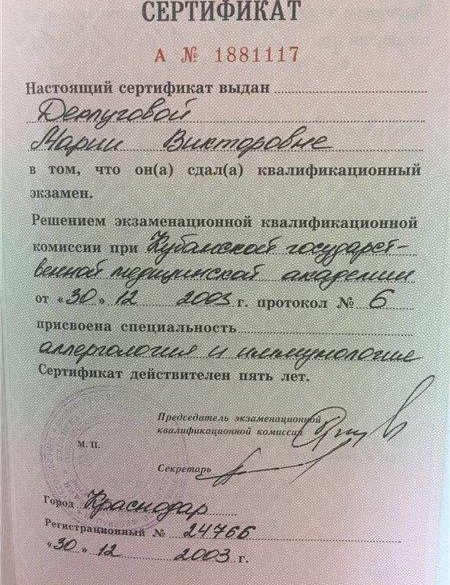 СЕРТИФИКАТ
А № 1881117
Настоящий сертификат выдан
Деплуговой
Марии Викторовне
в том, что он(а) сдал(а) квалификационный
экзамен.
Решением экзаменационной квалификационной
комиссии при Кубанской государст-
венной медицинской академии
от «30» 12 2003 г. протокол № 6
присвоена специальность
аллергология и иммунология
Сертификат действителен пять лет.
Председатель экзаменационной
квалификационной комиссии
М. П.
Секретарь
Город Краснодар
Регистрационный № 24766
«30» 12 2003 г.